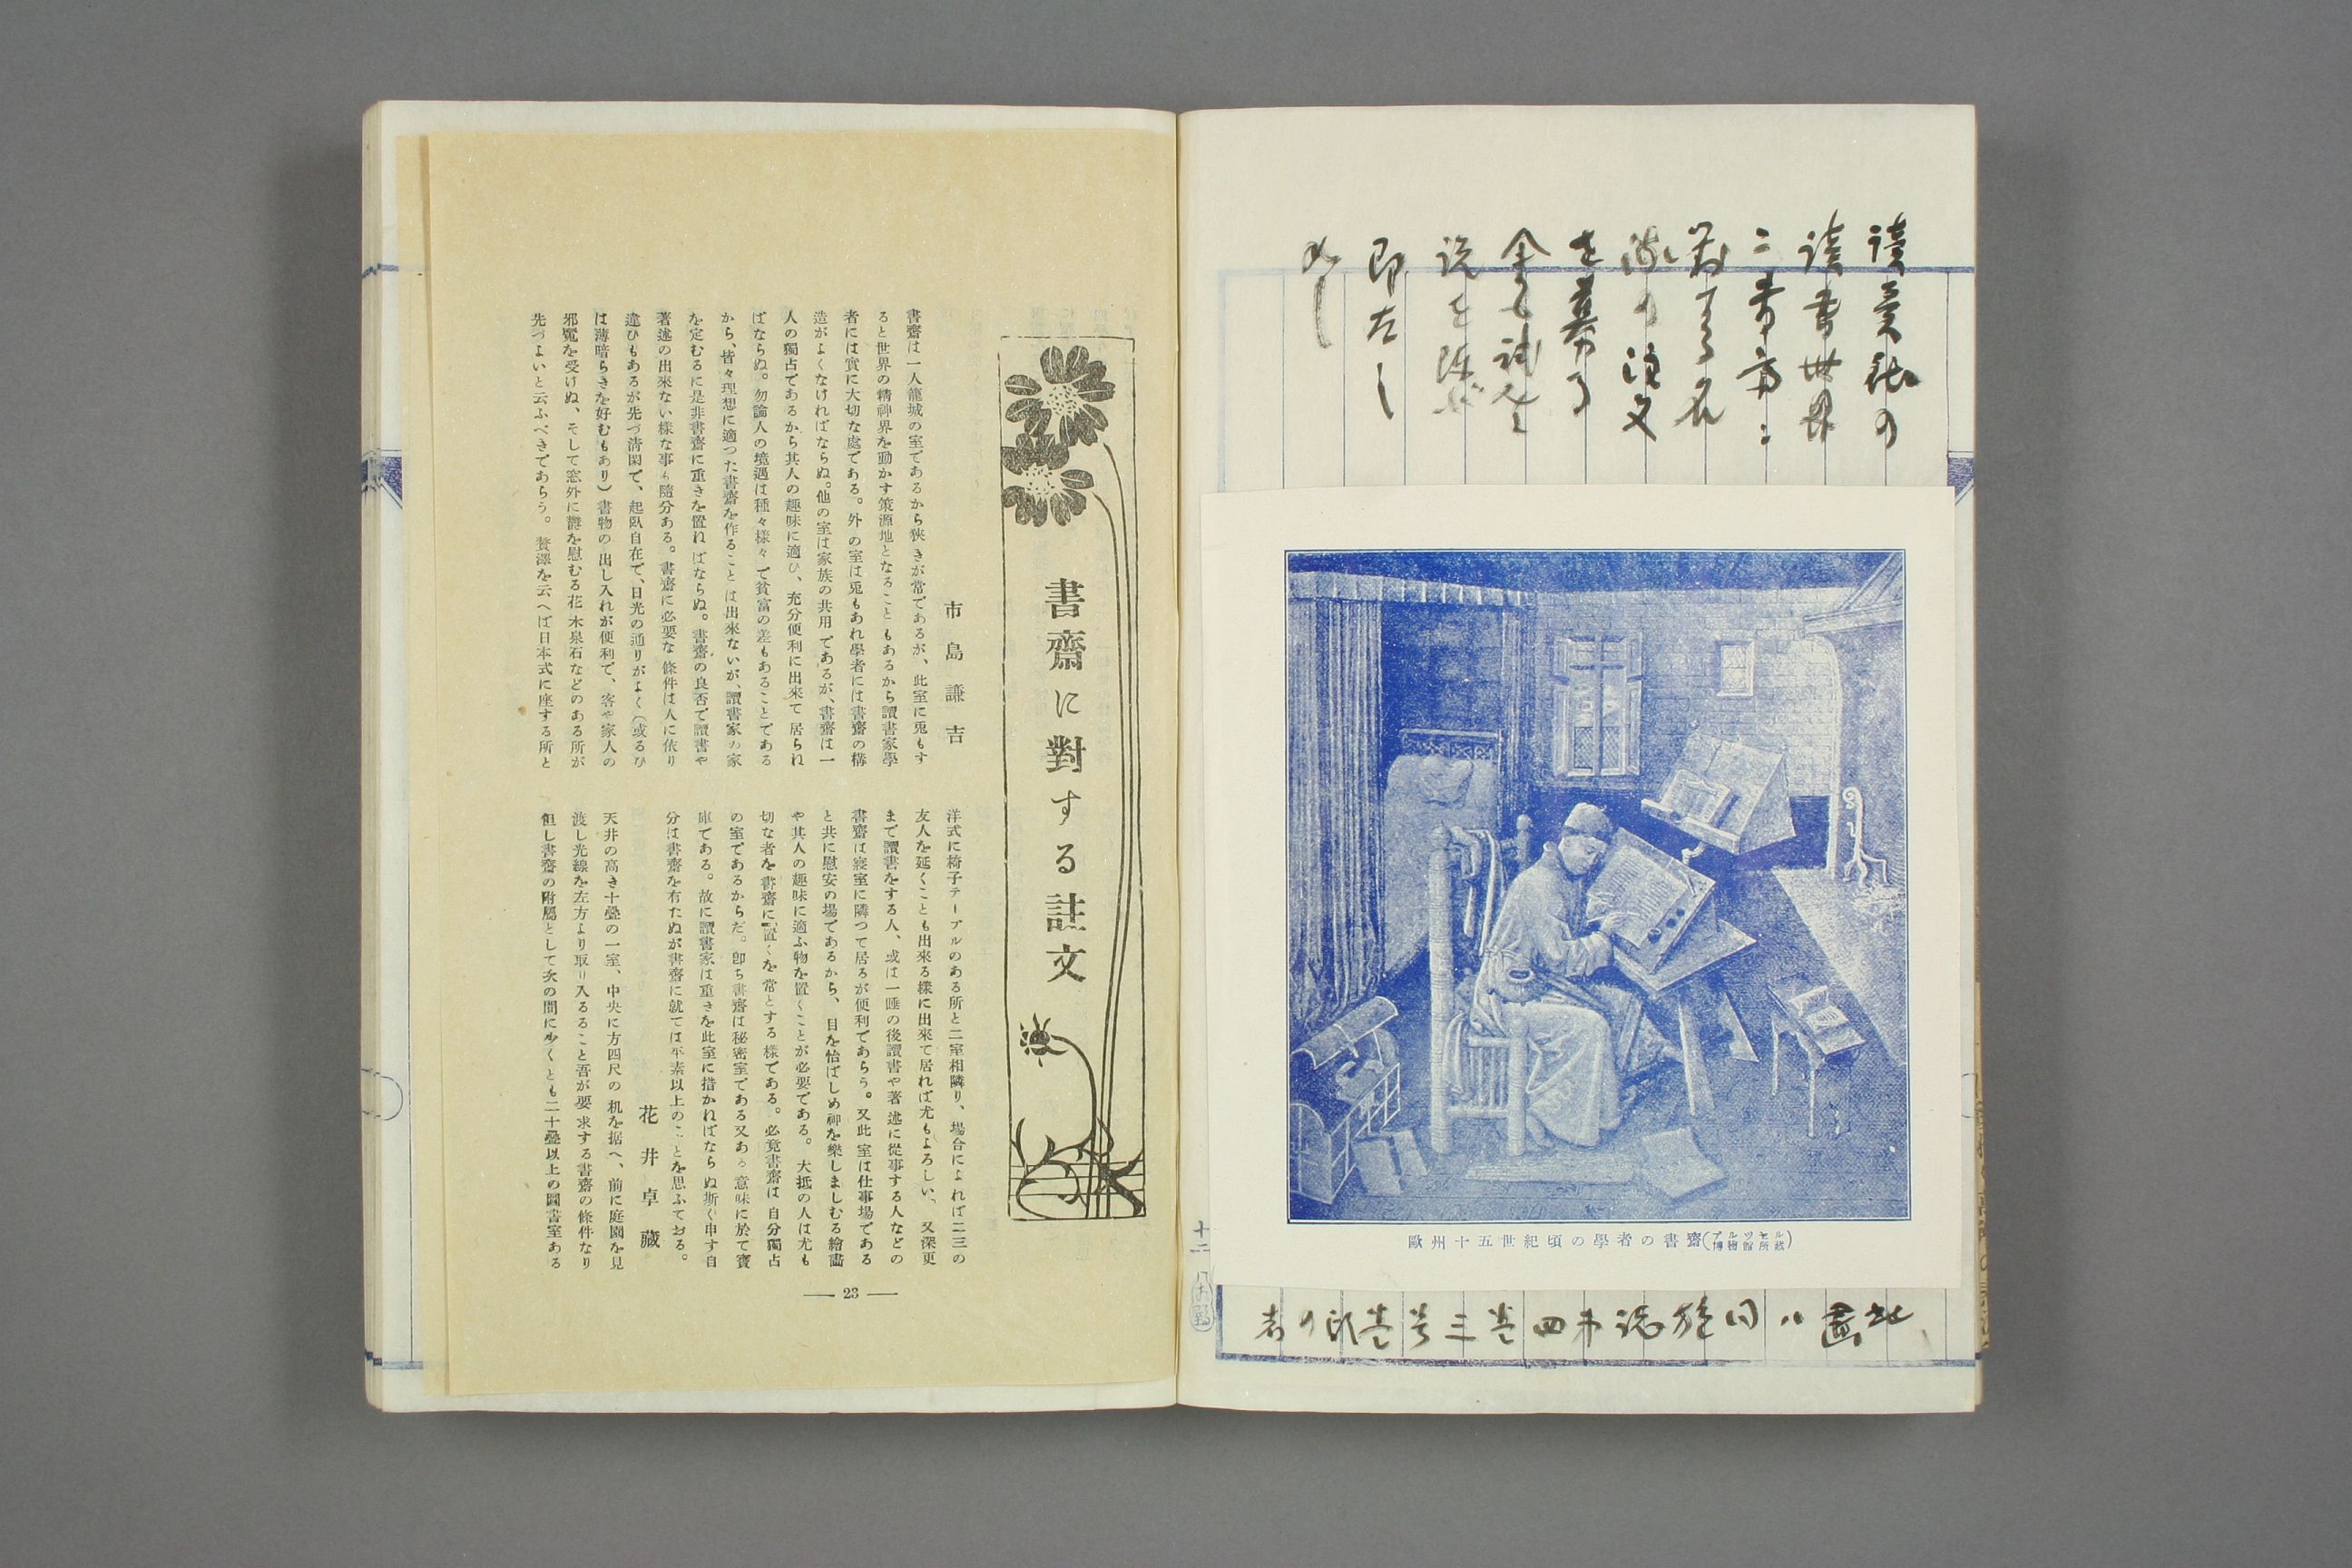 讀賣社の
讀書世界
ニ書斎ニ
對する名
流の註文
を募る
余も試ミニ
説を陳ぶ
即左し
如し
歐州十五世紀頃の學者の書齋(ブルツセル博物館所藏)
此畫ハ同雜誌第四巻三号巻頭の
者
書齋に對する註文
市島謙吉
書齋は一人籠城の室であるから狹きが常であるが、此室に兎もす
ると世界の精神界を動かす策源地となることもあるから讀書家學
者には實に大切な處である。外の室は兎もあれ學者には書齋の構
造がよくなければならぬ。他の室は家族の共用であるが、書齋は一
人の獨占であるから其人の趣味に適ひ、充分便利に出來て居らね
ばならぬ。勿論人の境遇は種々樣々で貧富の差もあることである
から、皆々理想に適つた書齋を作ることは出來ないが、讀書家の家
を定むるに是非書齋に重きを置ねばならぬ。書齋の良否で讀書や
著述の出來ない樣な事も隨分ある。書齋に必要な條件は人に依り
違ひもあるが先づ淸閑で、起臥自在で、日光の通りがよく(或るひ
は薄暗らきを好むもあり)書物の出し入れが便利で、客や家人の
邪魔を受けぬ、そして窓外に欝を慰むる花木泉石などのある所が
先づよいと云ふべきであらう。贅澤を云へば日本式に座する所と
洋式に椅子テーブルのある所と二室相隣り、場合によれば二三の
友人を延くことも出來る樣に出來て居れば尤もよろしい、又深更
まで讀書をする人、或は一睡の後讀書や著述に從事する人などの
書齋は寢室に隣つて居るが便利であらう。又此室は仕事場である
と共に慰安の場であるから、目を怡ばしめ神を樂しましむる繪畵
や其人の趣味に適ふ物を置くことが必要である。大抵の人は尤も
切な者を書齋に置くを常とする樣である。必竟書齋は自分獨占
の室であるからだ。卽ち書齋は秘密室である又ある意味に於て寳
庫である。故に讀書家は重きを此室に措かねばならぬ斯く申す自
分は書齋を有たぬが書齋に就ては平素以上のことを思ふておる。
花井卓藏
天井の高き十疊の一室、中央に方四尺の机を据へ、前に庭園を見
渡し光線を左方より取り入るること吾が要求する書齋の條件なり
但し書齋の附屬として次の間に少くとも二十疊以上の圖書室ある
— 23 —